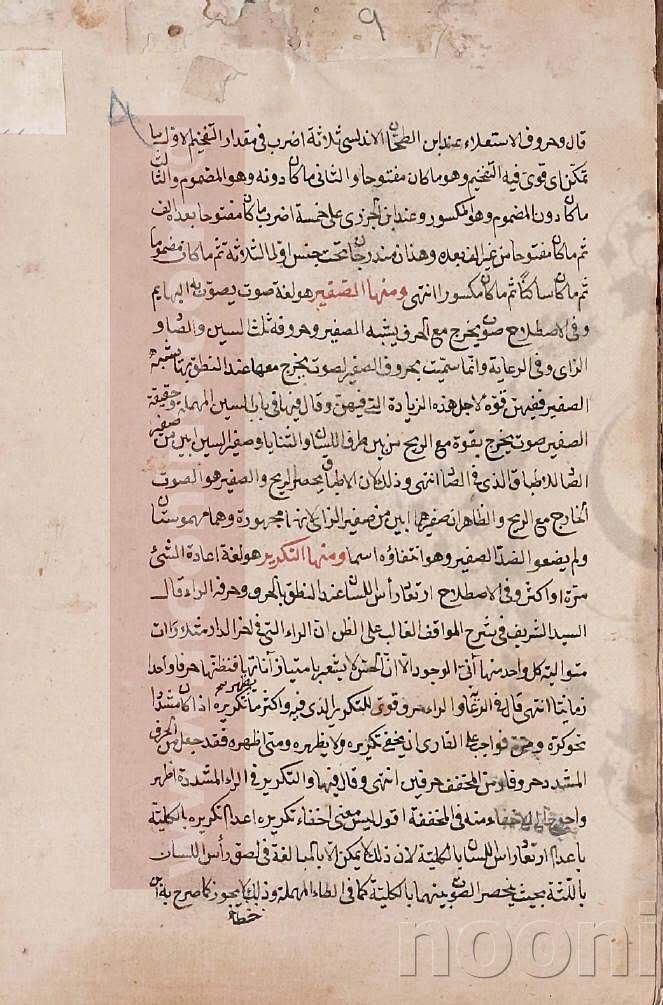 ٩
٨
قال وحروف الاستعلاء عند ابن الطحان الاندلسى ثلاثة اضرب فى مقدار التفخيم الاول ما
تمكن اى قوى فيه التفخيم وهو ما كان مفتوحا والثانى ما كان دونه وهو المضموم والثالث
ما كان دون المضموم وهو المكسور وعند ابن الجزرى على خمسة اضرب ما كان مفتوحا بعده الف
ثم ما كان مفتوحا من غير الف بعده وهذان مندرجان تحت جنس اول الثلاثة ثم ما كان مضموما
ثم ما كان ساكنا ثم ما كان مكسورا انتهى ومنها الصفير هو لغة صوت يصوت به البهايم
وفى الاصطلاح صوت يخرج مع الحرف يشبه الصفير وحروفه ثلث السين والصاد و
الزاى وفى الرعاية وانما سميت بحروف الصفير لصوت يخرج معها عند النطق بها يشبه
الصفير ففيهن قوة لاجل هذه الزيادة التى فيهن وقال فيها فى باب السين المهملة وحقيقة
الصفير صوت يخرج بقوة مع الريح من بين طرف اللسان والثنايا وصفير السين ابين من صفير
الصاد للاطباق الذى فى الصاد انتهى وذلك لان الاطباق يحصر الريح والصفير هو الصوت
الخارج مع الريح والظاهر ان صفيرهما ابين من صفير الزاى لانها مجهورة وهما مهموستان
ولم يضعوا لضد الصفير وهو انتفاؤه اسما ومنها التكرير هو لغة اعادة الشئ
مرة او اكثر وفى الاصطلاح ارتعاد رأس اللسان عند النطق بالحروف وحرفه الراء قال
السيد الشريف فى شرح المواقف الغالب على الظن ان الراء التى فى اخر الدار مثلا راآت
متوالية كل واحد منها آنى الوجود الا ان الحس لا يشعر بامتياز آناتها فنظنها حرفا واحدا
زمانيا انتهى قال فى الرعاية والراء حرف قوى للتكرير الذى فيه واكثر ما يظهر تكريره اذا كان مشددا
نحو كرة ومرة فواجب على القارى ان يخفى تكريره ولا يظهره ومتى اظهره فقد جعل من الحرف
المشدد حروفا ومن المخفف حرفين انتهى وقال فيها والتكرير فى الراء المشددة اظهر
واحوج الى الاخفاء منه فى المخففة اقول ليس معنى اخفاء تكريره اعدام تكريره بالكلية
باعدام ارتعاد رأس اللسان بالكلية لان ذلك لا يمكن الا بالمبالغة فى لصق رأس اللسان
باللثة بحيث ينحصر الصوت بينهما بالكلية كما فى الطاء المهملة وذلك لا يجوز كما صرح به ابن
خطاء
nooni